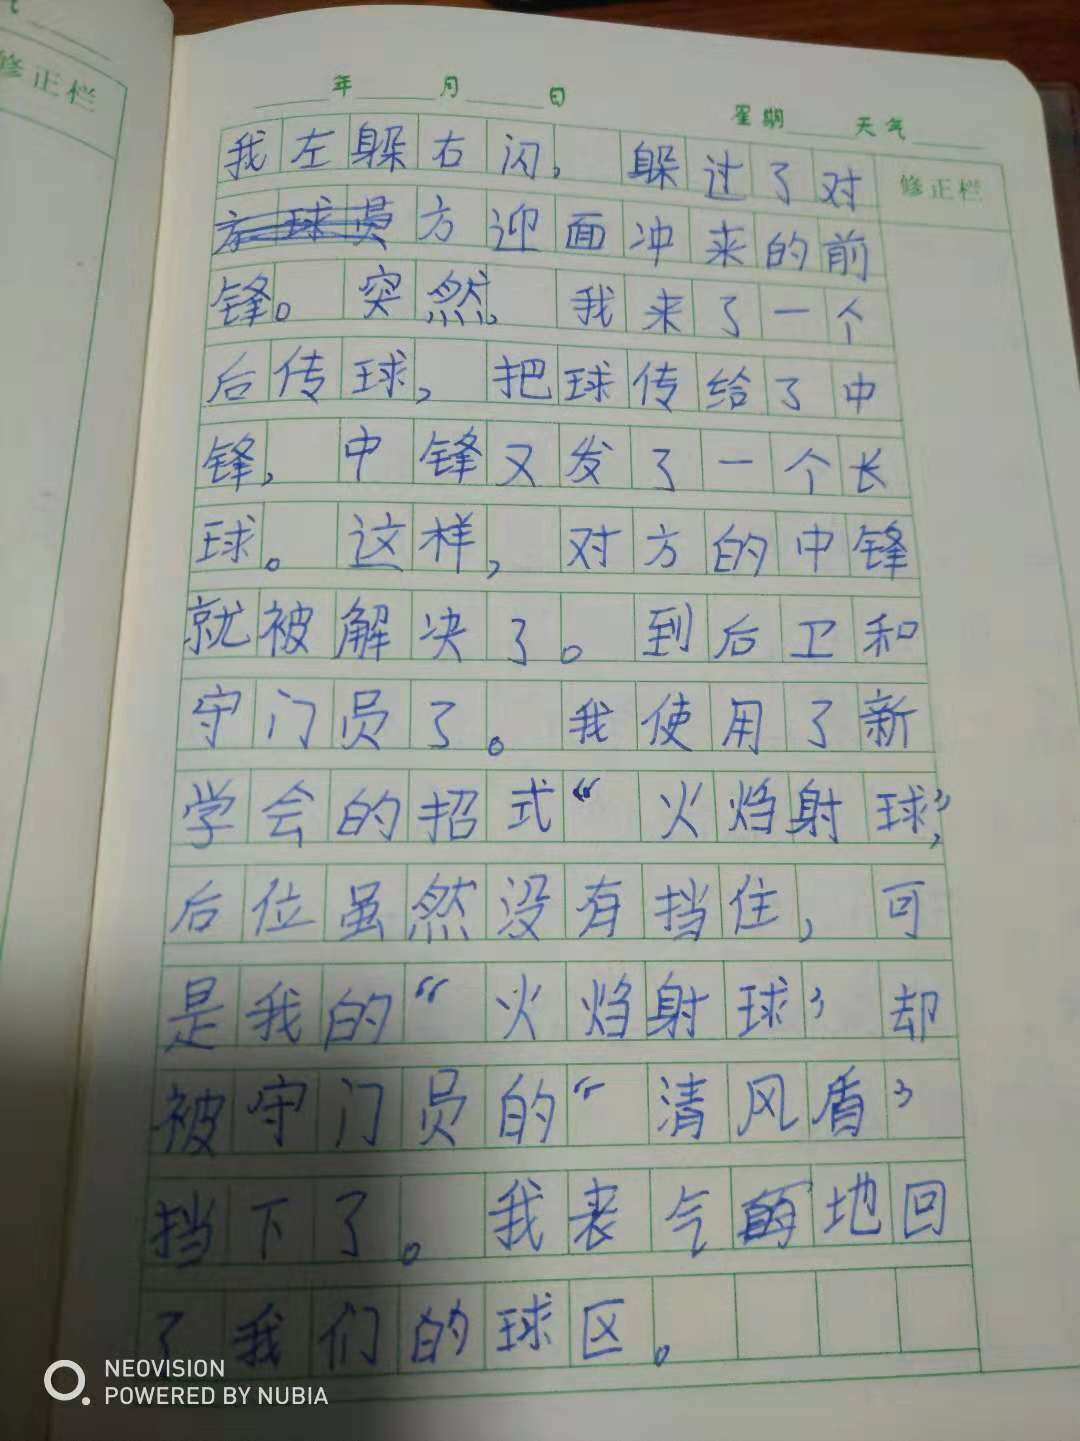 气
修正栏
年 月 日 星期 天气
修正栏
我左躲右闪，躲过了对
方球员方迎面冲来的前
锋。突然，我来了一个
后传球，把球传给了中
锋，中锋又发了一个长
球。这样，对方的中锋
就被解决了。到后卫和
守门员了。我使用了新
学会的招式“火焰射球”，
后位虽然没有挡住，可
是我的“火焰射球”却
被守门员的“清风盾”
挡下了。我丧气的地回
了我们的球区。
NEOVISION
POWERED BY NUBIA